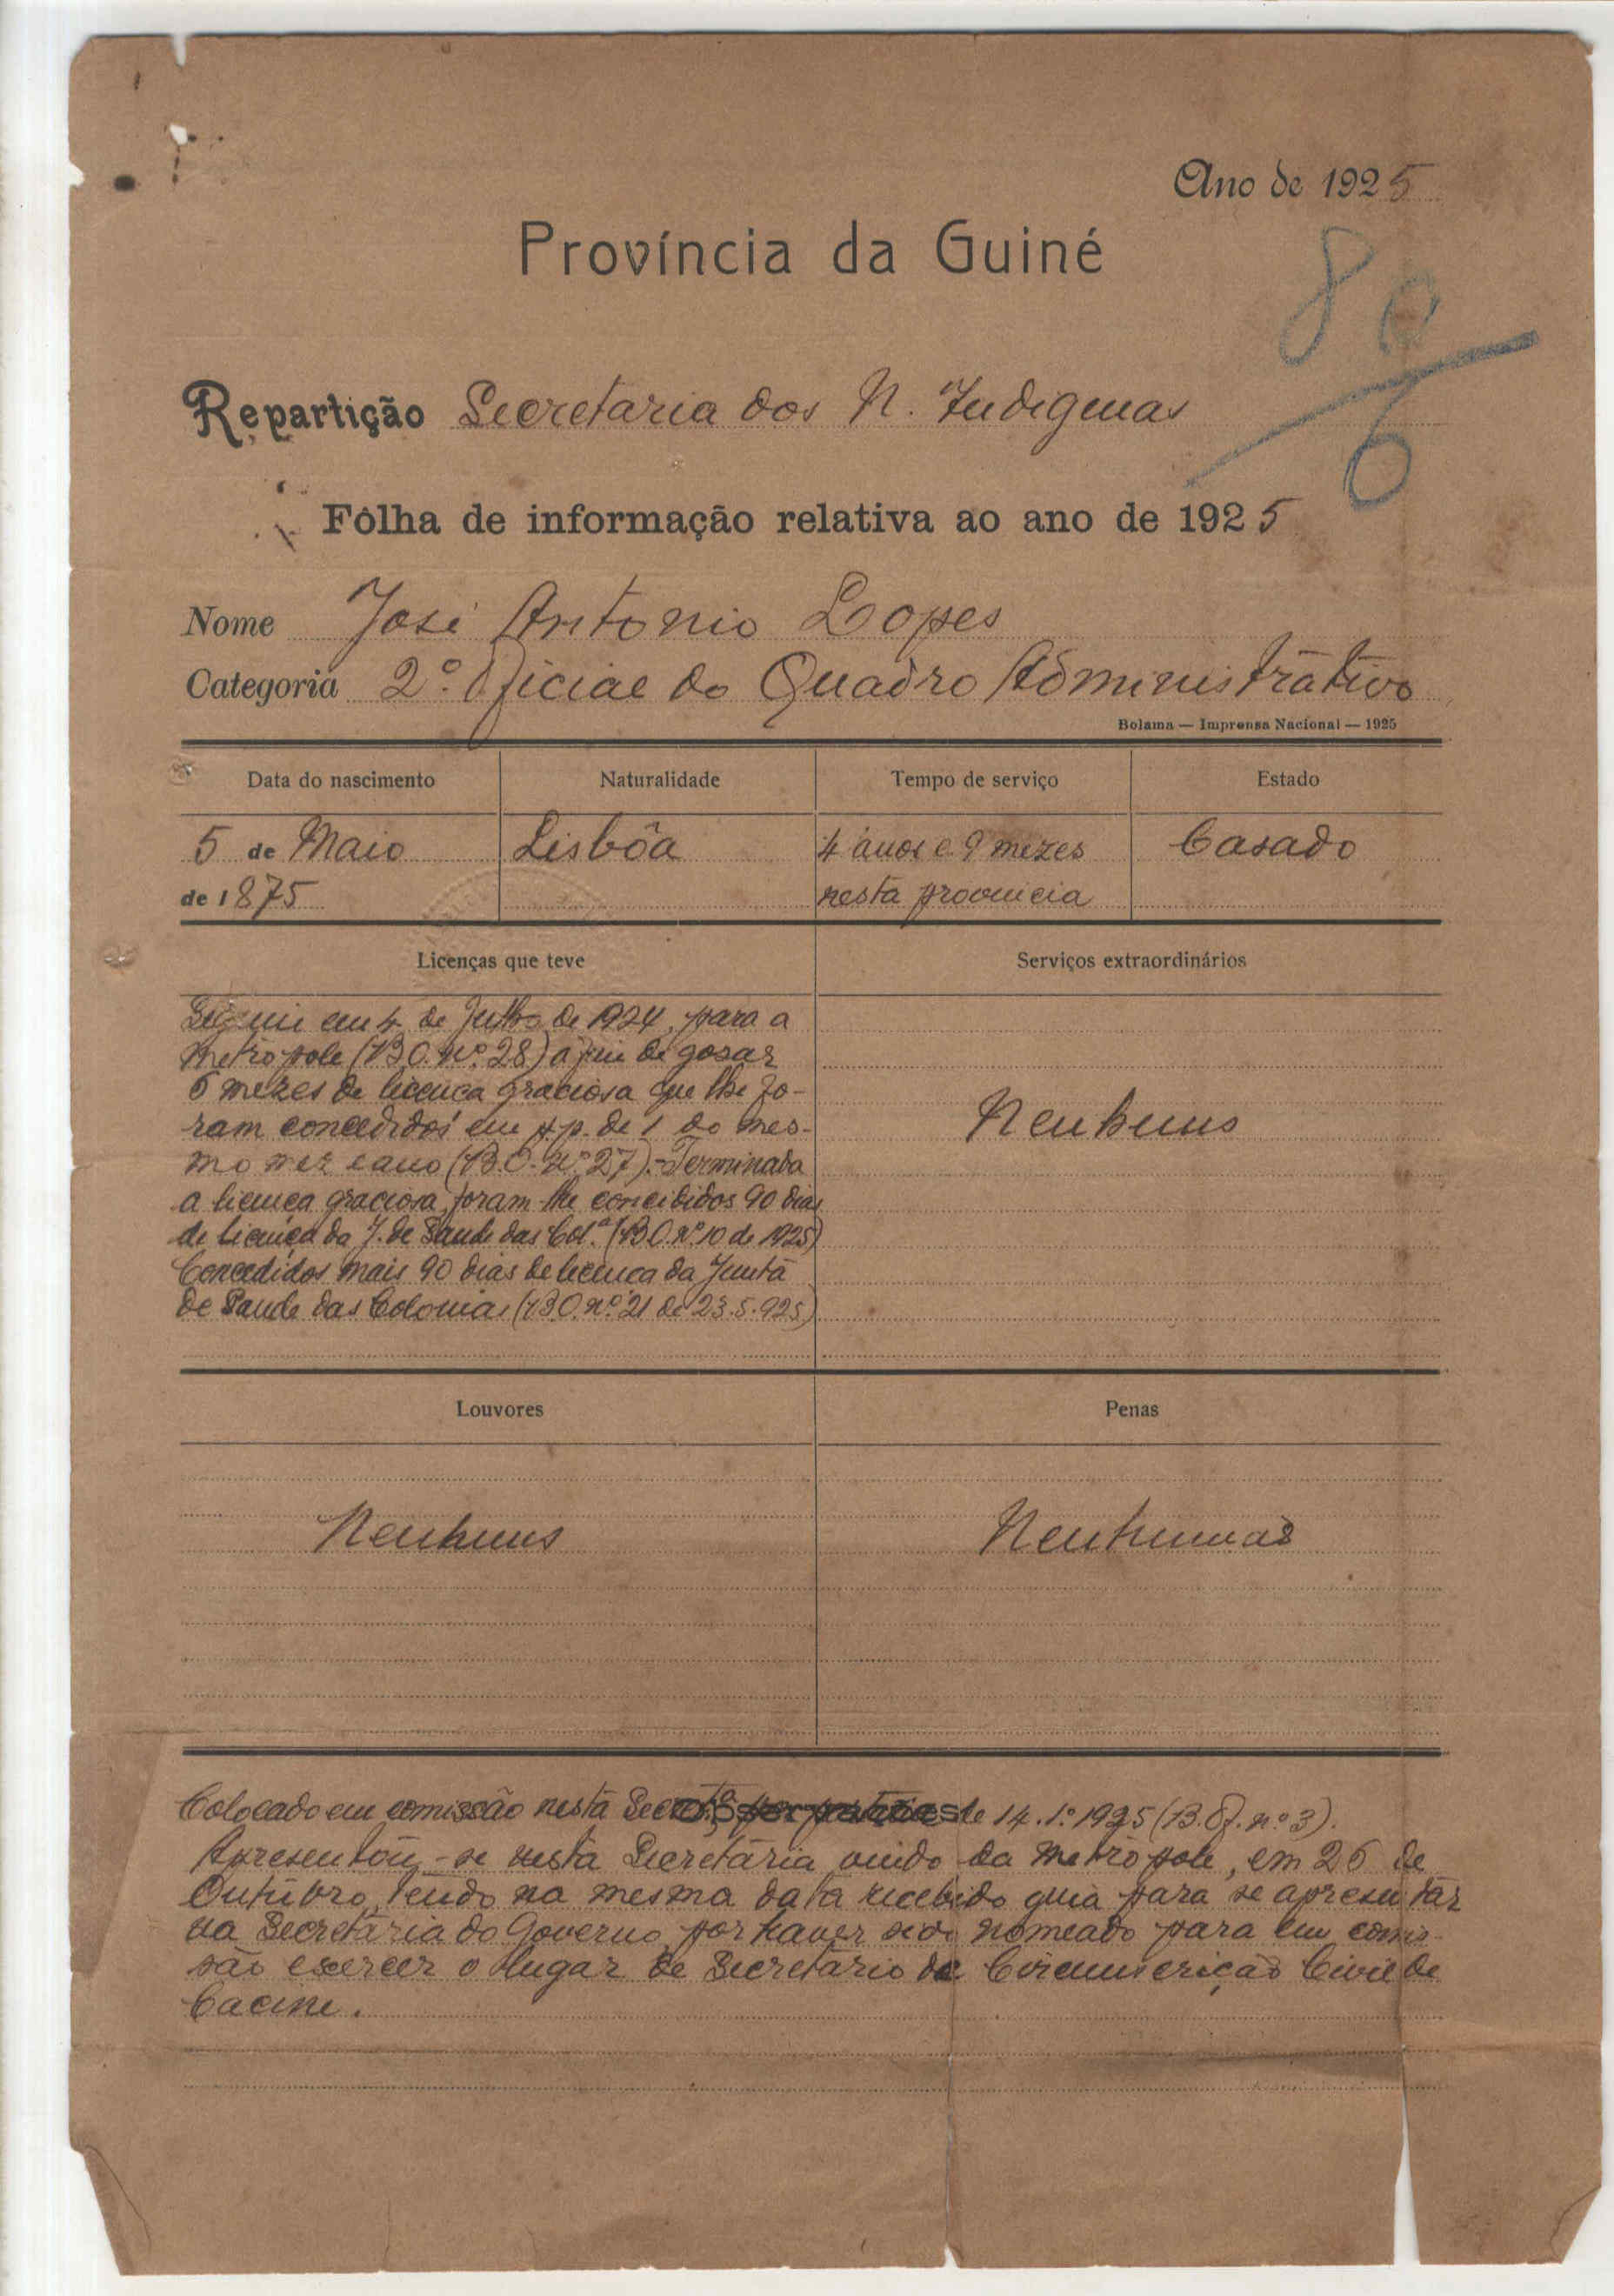 Ano de 1925
Província da Guiné
80
6
Repartição Secretaria dos N. Indigenas
Fôlha de informação relativa ao ano de 1925
Nome José Antonio Lopes
Categoria 2.º Oficial do Quadro Administrativo
Bolama — Imprensa Nacional — 1925
Data do nascimento Naturalidade Tempo de serviço Estado
5 de Maio Lisbôa 4 anos e 9 mezes Casado
de 1875 nesta provincia
Licenças que teve Serviços extraordinários
Seguiu em 4 de Julho de 1924, para a
metrópole (B.O. nº 28) a fim de gosar
6 mezes de licença graciosa que lhe fo-
ram concedidos em p.p. de 1 do mes-
mo mez e ano (B.O. nº 27).-Terminada
a licença graciosa, foram-lhe concedidos 90 dias
de licença da J. de Saude das Col.ª (B.O. nº 10 de 1925)
Concedidos mais 90 dias de licença da Junta
de Saude das Colonias (B.O. nº 21 de 23.5.925)
Nenhuns
Louvores Penas
Nenhuns Nenhumas
Observações
Colocado em comissão nesta Secret.ª, por portaria de 14.1.º 1925 (B. Of. nº 3).
Apresentou-se nesta Secretária vindo da Metrópole, em 26 de
Outubro, tendo na mesma data recebido guia para se apresentar
na Secretária do Governo por haver sido nomeado para em comis-
são exercer o lugar de Secretario da Circunscrição Civil de
Cacine.